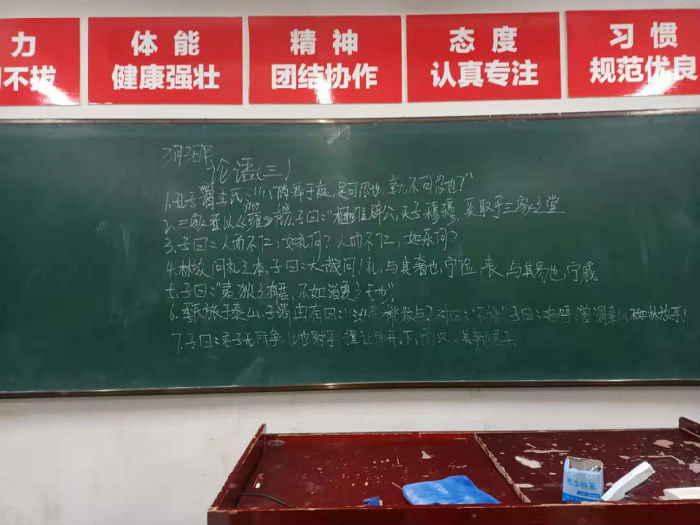 力 体能 精神 态度 习惯
不拔 健康强壮 团结协作 认真专注 规范优良
论语(三)
1.孔子谓季氏:"八佾舞于庭,是可忍也,孰不可忍也?"
2.三家者以《雍》彻,子曰:"相维辟公,天子穆穆,奚取于三家之堂
3.子曰:人而不仁,如礼何?人而不仁,如乐何?
4.林放问礼之本,子曰:大哉问!礼,与其奢也,宁俭,丧,与其易也,宁戚
5.子曰:"夷狄之有君,不如诸夏之无也"
6.季氏旅于泰山,子谓冉有曰: 救与?对曰:"不能"子曰:呜呼 泰山不如林放乎!
7.子曰:君子无所争 必也射乎 揖让而升,下,而饮,其争也君子